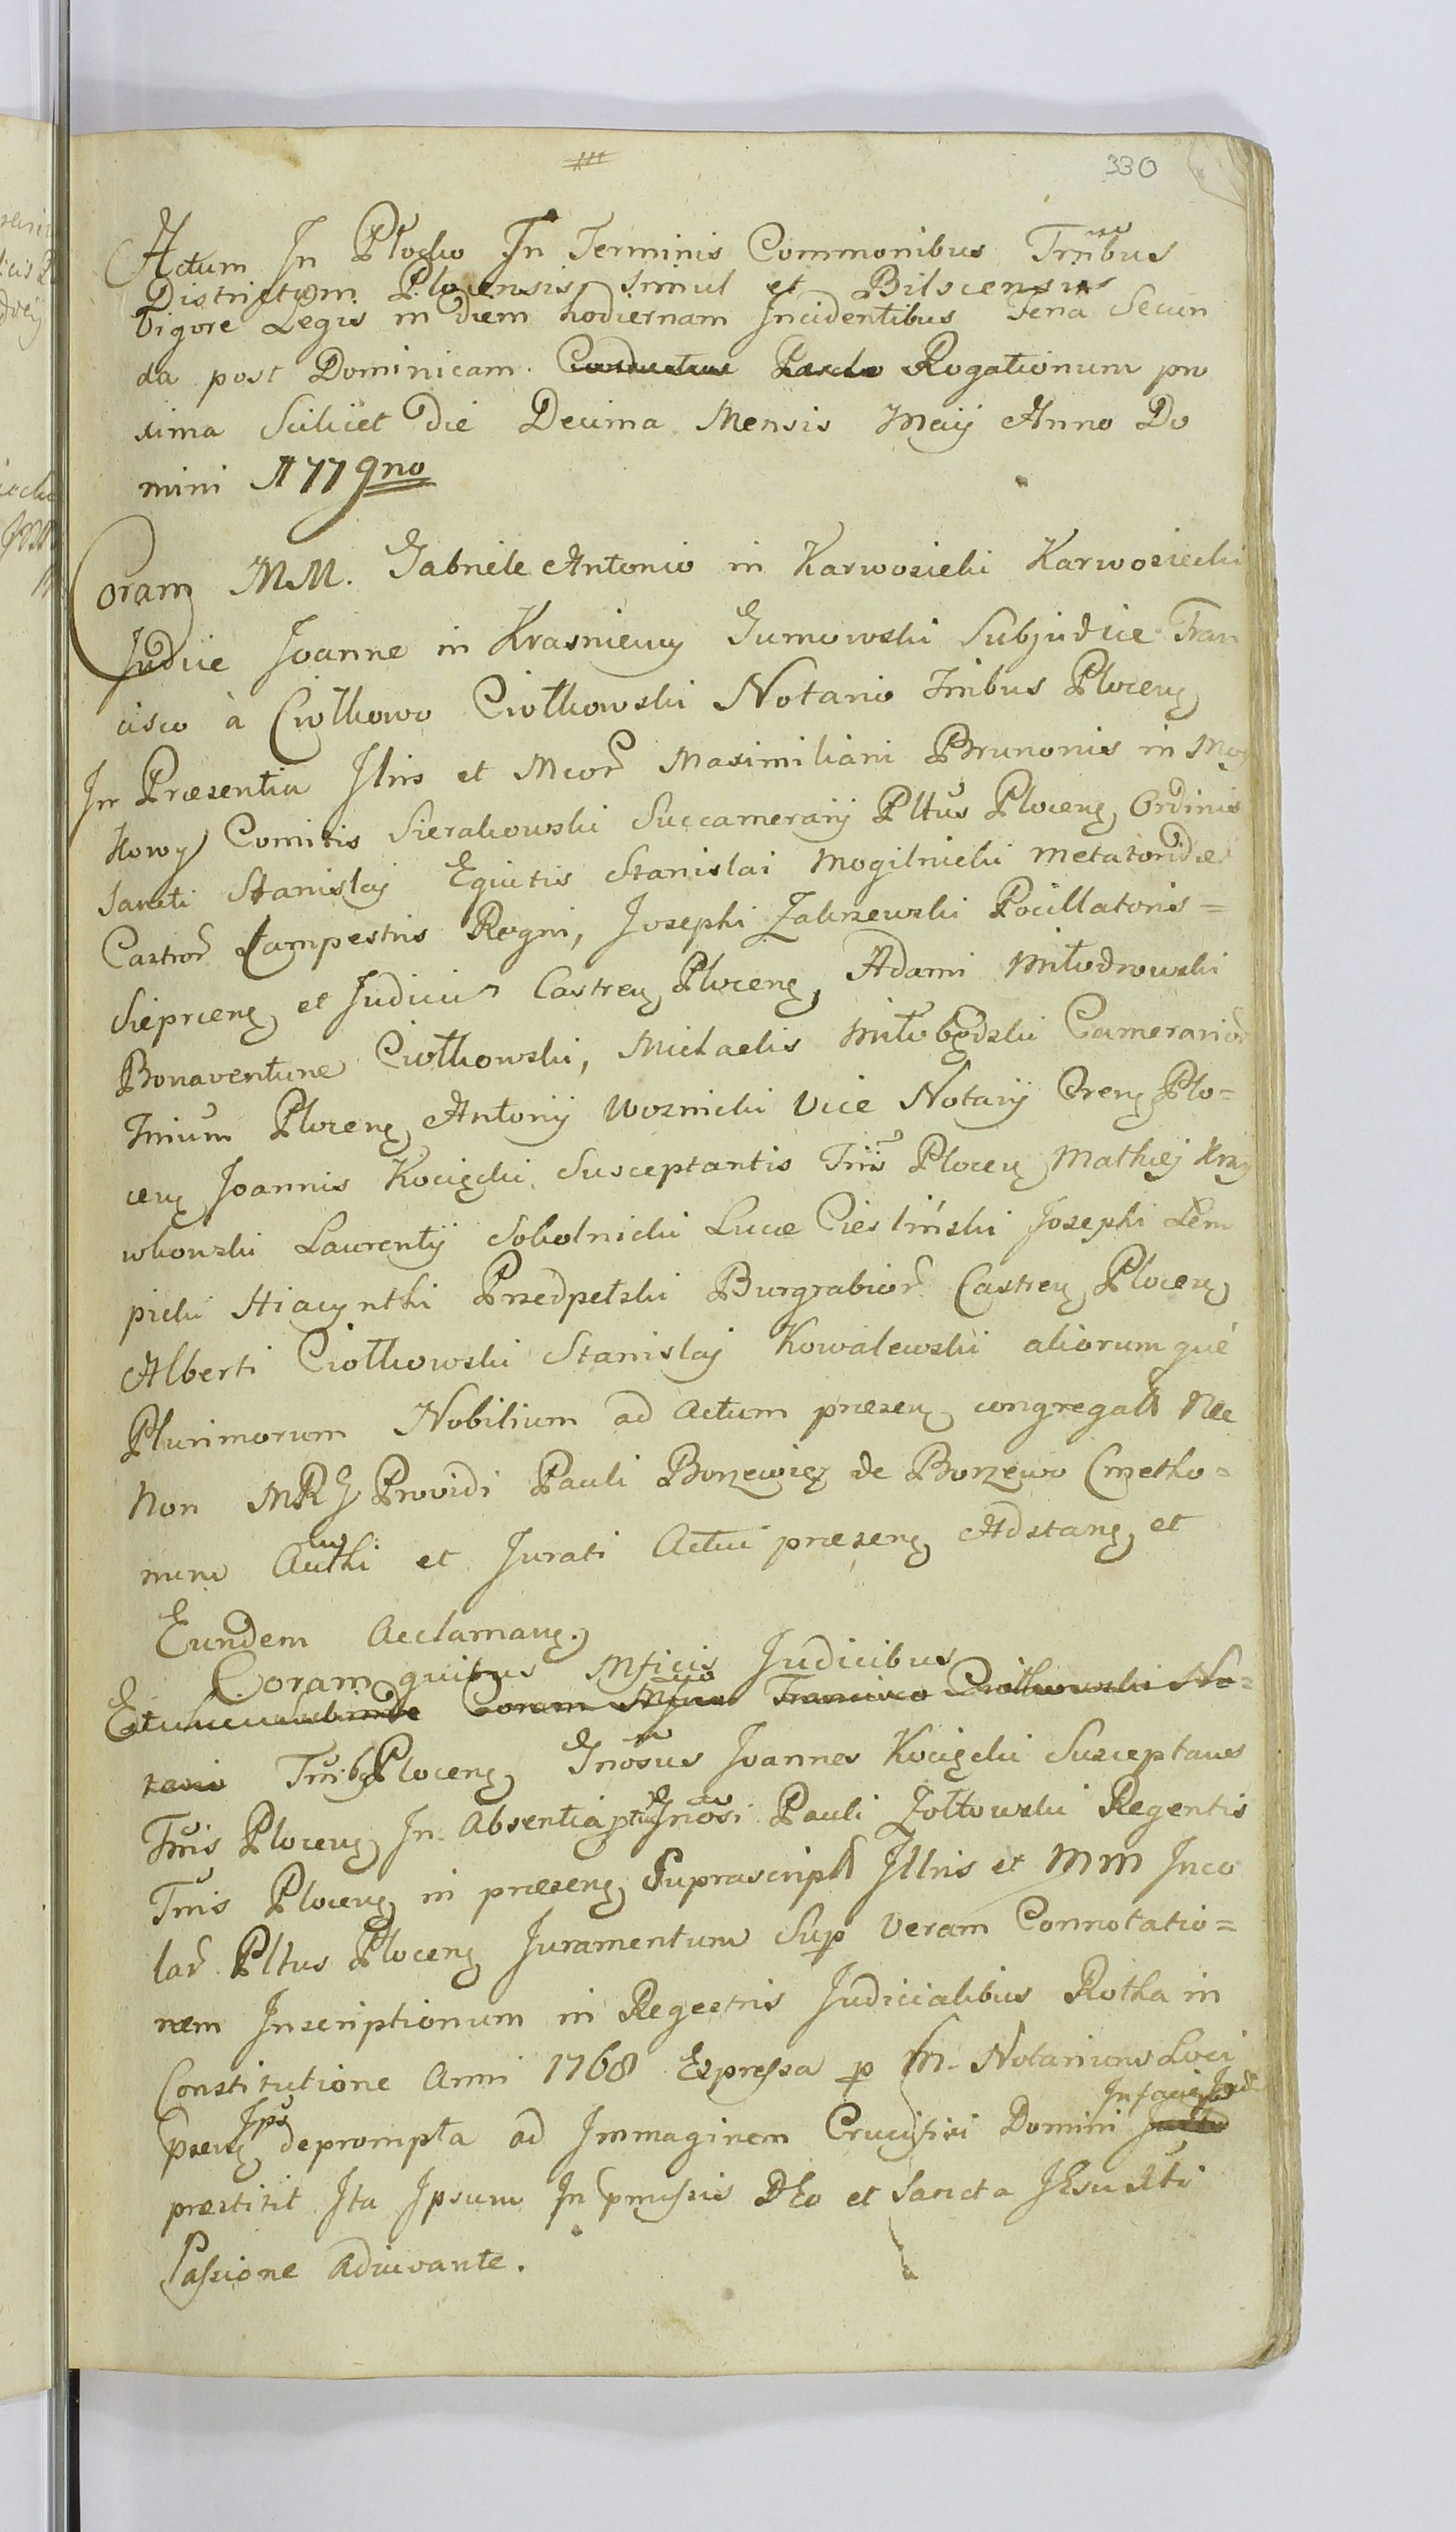 330
Actum In Płocko In Terminis Commonibus Trribus
Districtum Plocensis, Simul et Bilscensis
Vigore Legis in diem hodiernam Incidentibus Feria Secun
da post Dominicam Rogationum pro
xima Scilicet Die Decima Mensis Maij Anno Do
mini 1779no
Coram MM. Gabriele Antonio in Karwosieki Karwosiecki
Judice Joanne in Krasniewy Gumowski Subjudice Fran
cisco à Ciołkowo Ciołkowski Notario Trribus Plocen
In Præsentia Illris et Mcor Maximiliani Brunonis in
kowy Comitis Sierakowski Succamerarij Pltus Plocen, Ordinis
Sancti Stanislaj Equitis Stanislai Mogilnicki Metatoridæ
Castror Campestris Regni, Josephi Zakrzewski Pocillatoris=
Sieprcen, et Judicis Castren, Plocen, Adami Miłodrowski
Bonaventuræ Ciołkowski, Michaelis Miłobędzki Camerarior
Trrium Plocen, Antonij Woznicki Vice Notarij Cren, Plo=
cen, Joannis Kocięcki Susceptantis Trris Plocen, Mathiej Krzy
wkowski Laurentij Sokolnicki Lucæ Ciesliński Josephi Lem
picki Hiacynthi Przedpełski Burgrabior Castren, Plocen,
Alberti Ciołkowski Stanislaj Kowalewski aliorumqué
Plurimorum Nobilium ad Actum præsen, congregat Nec
Non MRG Providi Pauli Borzewicz de Borzewo Cmetho=
num et Jurati Actui præsen, Adstan, et
Eundem Acclaman.
Coram quibus Mficis Judicibus
Coram Francisco Ciołkowski No=
tario Trribq Plocen, Gnosus Joannes Kocięcki Susceptans
Trris Plocen, In Absentia ptu Gnosi Pauli Zołtowski Regentis
Trris Plocen, in præsen, Suprascript Illris et MM Inco
lar Pltus Plocen, Juramentum Sup Veram Connotatio=
nem Inscriptionum in Regestris Judicialibus Rotha in
Constitutione Anni 1768 Expressa p M. Notarium Loci
In facie Jud
præsen, Ips deprompta ad Immaginem Crucifixi Domini
præstitit Ita Ipsum In pmissis DEo et Sancta JEsu Xti
Passione Adiuvante.